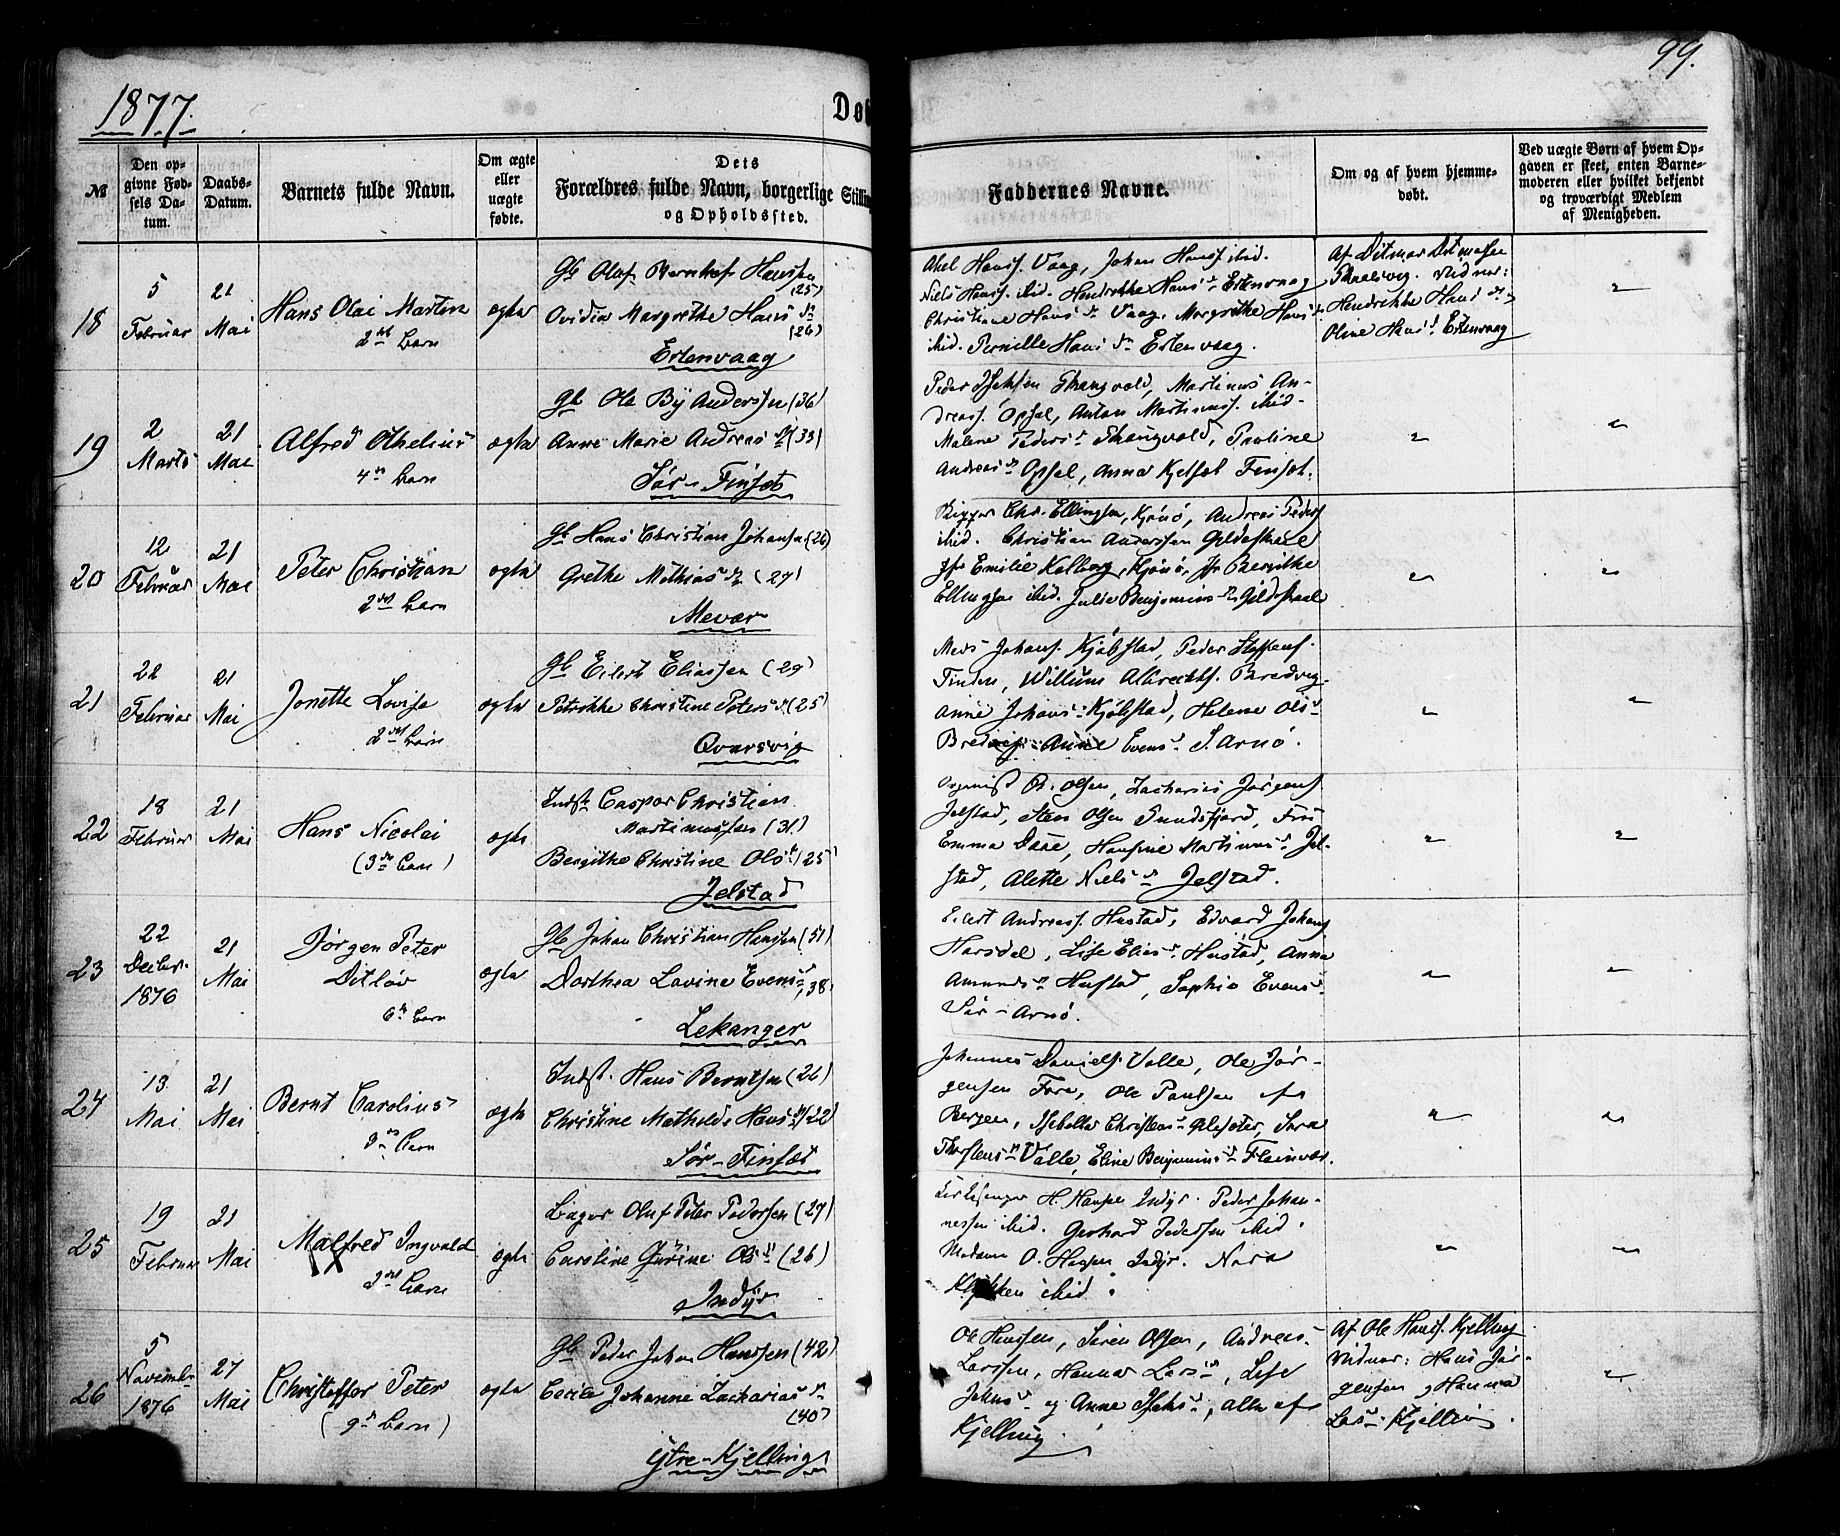 99.
1877.
Døb
№
Den op-
givne Fød-
sels Da-
tum.
Daabs-
Datum.
Barnets fulde Navn.
Om ægte
eller
uægte
fødte.
Dets
Forældres fulde Navn, borgerlige Stillin
og Opholdssted.
Faddernes Navne.
Om og af hvem hjemme-
døbt.
Ved uægte Børn af hvem Op-
gaven er skeet, enten Barne-
moderen eller hvilket bekjendt
og troværdigt Medlem
af Menigheden.
18
5
Februar
21
Mai
Hans Olai Martin
2det barn
ægte
Gb Oluf Bernhof Hanssen
(25)
Ovidia Margrethe Hans dr
(26)
Ertenvaag
Axel Hanss. Vaag, Johan Hanss ibid.
Niels Hanss. ibid. Hendrikke Hans dr Ertenvaag
Christiane Hans dr Vaag, Margrethe Hans dr
ibid. Pernille Hans dr Ertenvaag.
Af Ditmar Ditmarsen
Skaalsvig. Vidner:
Hendrikke Hans dr
Oline Hans d Ertenvaag
"
19
2
Marts
21
Mai
Alfred Othelius
4de barn
ægte
Gb Ole By Anderssen (36)
Anne Marie Andreas dr (33)
Sør-Finset
Peder Skangvold, Martinus An-
dreass. Opsal, Anton Martinuss. ibid.
Malene Peders d Skangvold, Pauline
Andreas dr Opsal, Anna Kjelsat Finset.
"
"
20
12
Februar
21
Mai
Peter Christian
2det barn
ægte
Gb Hans Christian Johansen (26)
Grethe Mathias dr (27)
Mevær
Chr. Ellingsen, Kjønø, Andreas Peders
ibid. Christian Anderssen Gildeskaal
Jfr Emilie Kolberg, Kjønø, Jfr Bergitte
Ellingsen ibid. Julie Benjamins dr Gildeskaal
"
"
21
22
Februar
21
Mai
Jonette Lovise
2det barn
ægte
Gb Eilert Eliassen (29)
Petrikke Christine Peters dr (25)
Qvarsvig
Mons Johans. Kjøbstad, Peder Steffens.
Finden, Willum Albrechts. Bredvig
Anne Johans d Kjøbstad, Helene Ols d
Bredvig Anne Evens d S. Arnø.
"
"
22
18
Februar
21
Mai
Hans Nicolai
(3de barn)
ægte
Indst Caspar Christian
Martinussen (31)
Bergithe Christine Ols d (25)
Jelstad
Organist P. Olsen, Zacharias Jørgens
Jelstad, Sten Olsen Sundsfjord, Fru
Emma Daae, Hansine Martinus d Jel-
stad, Alette Niels d Jelstad.
"
"
23
22
Decbr.
1876
21
Mai
Jørgen Peter
Ditløv
6te barn
ægte
Gb Johan Christian Hanssen (51)
Dorthea Lovine Evens d
38.
Lekanger
Eilert Andreass. Hustad, Edvard Johans
Horsdal, Lise Elias d Hustad, Anna
Amunds dr Hustad, Sophie Evens d
Sør-Arnø.
"
"
24
13
Mai
21
Mai
Bernt Carolius
3de barn
ægte
Indst. Hans Berntsen (26)
Christine Mathilde Hans dr (22)
Sør-Finset
Johannes Daniels. Valle, Ole Jør-
gensen Fore, Ole Paulsen fra
Bergen, Isbella Christens d Sara
Thorstens dr Valle, Eline Benjamins d Fleinvær.
"
"
25
19
Februar
21
Mai
Malfred Ingvald
2det barn
ægte
Bager Oluf Peter Pedersen (27)
Caroline Gurine Ols d (26)
Indyr
Kirkesanger H. Indyr. Peder Johan-
nessen ibid. Gerhard Pedersen ibid.
Madame O. Indyr. Nora
ibid.
"
"
26
5
Novembr
1876
27
Mai
Christoffer Peter
(9de barn)
ægte
Gb Peder Johan Hanssen (42)
Cecilie Johanne Zacharias dr
(40)
Ytre-Kjelling
Ole Hanssen, Søren Olsen, Andreas
Larssen, Hanna Lars d, Lise
Johns d og Anne Isaks d, alle af
Kjelling
Af Ole Hanss. Kjelling
Vidner: Hans Jør-
gensen, Hanna
Lars d Kjelling.
"